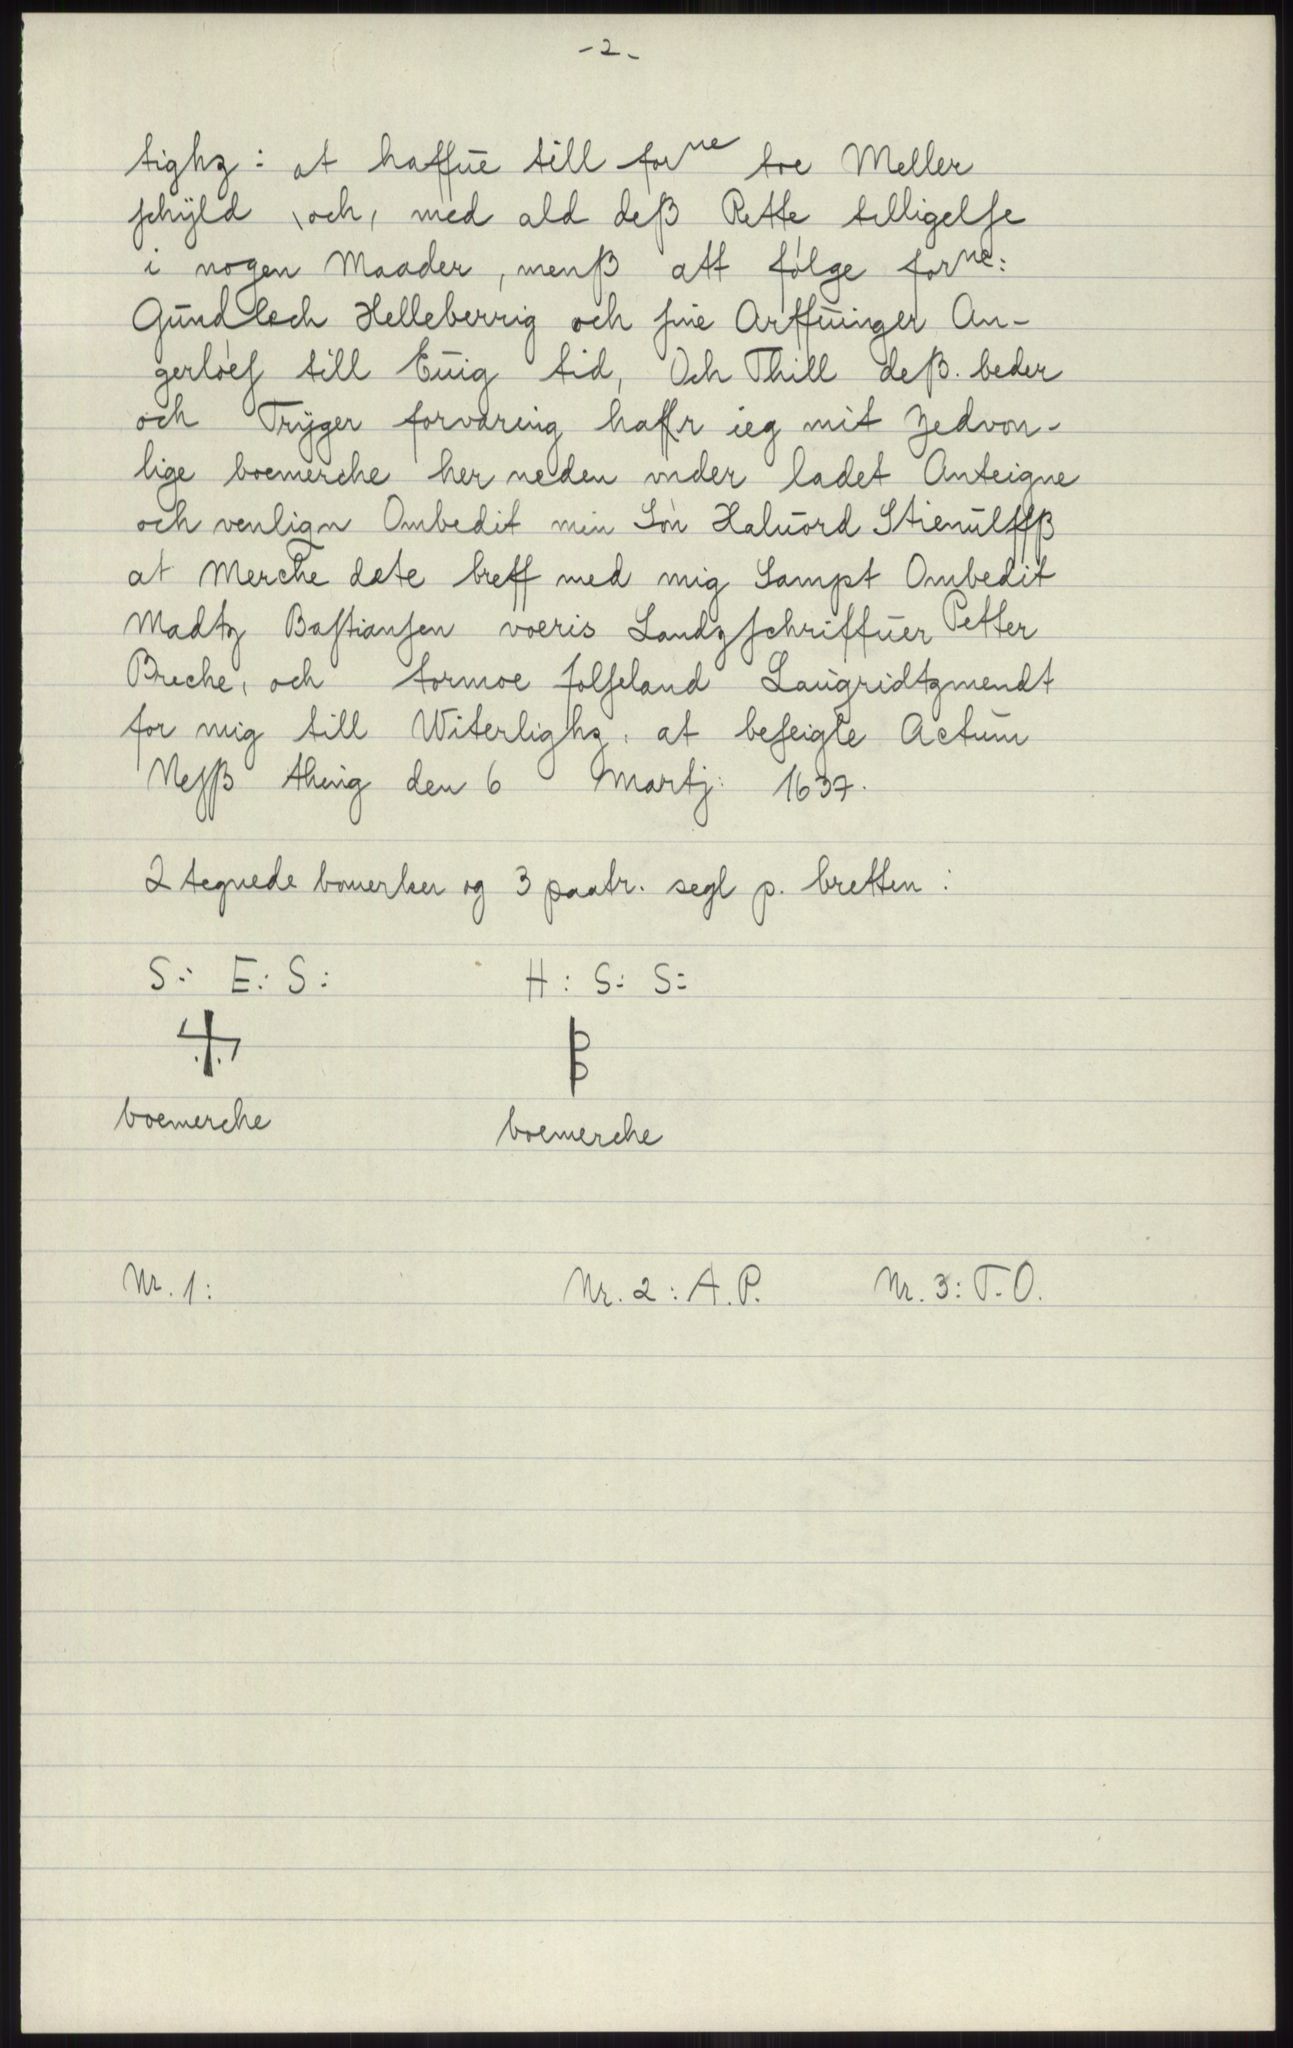 - 2 -
tighz : at haffue till forne toe Meller
schÿld , och , med ald deß Rette telligelse
i nogen Maader , menß att følge forne:
Gundlech Helleberrig och sine Arffuinger An-
gerløes till Euig tid, Och Thill deß. beder
och Trÿger forvaring haffr ieg mit Zedvon-
lige boemerche her neden vnder ladet Anteigne
och venlign Ombedit min Søn Haluord Stienulffß
at Merche dete breff med mig Sampt Ombedit
Madtz Bastiansen voeris Landzschriffuer Petter
Breche, och tormoe folseland Laugridtzmendt
for mig till Witerlighz. at beseigle Actum
Neßß thing den 6 Martj: 1637.
2 tegnede bomerker og 3 paatr. segl p. bretten :
S: E: S:
H : S: S:
boemerche
boemerche
Nr. 1:
Nr. 2 : A. P.
Nr. 3: T. O.